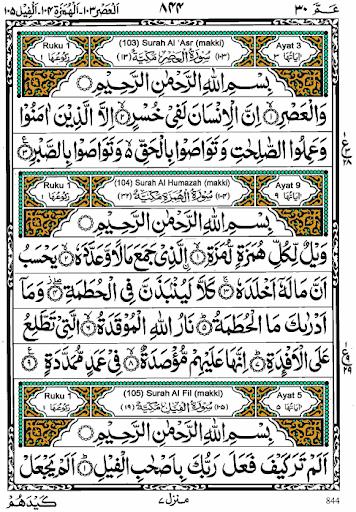 عـمّ ٣٠ ٨٤٤ العصر ١٠٣، الهمزة ١٠٤، الفيل ١٠٥
Ruku 1 (103) Surah Al 'Asr (makki) Ayat 3
اٰیَاتُهَا ٣ (١٠٣) سُوْرَةُ الْعَصْرِ مَكِّيَّةٌ (١٣) رُكُوْعُهَا ١
بِسْمِ اللّٰهِ الرَّحْمٰنِ الرَّحِيْمِ
وَالْعَصْرِ ۙ‏﴿١﴾ اِنَّ الْاِنْسَانَ لَفِيْ خُسْرٍ ۙ‏﴿٢﴾ اِلَّا الَّذِيْنَ اٰمَنُوْا
وَعَمِلُوا الصّٰلِحٰتِ وَتَوَاصَوْا بِالْحَقِّ ۙ وَتَوَاصَوْا بِالصَّبْرِ ﴿٣﴾
ع ٢٨
Ruku 1 (104) Surah Al Humazah (makki) Ayat 9
اٰیَاتُهَا ٩ (١٠٤) سُوْرَةُ الْهُمَزَةِ مَكِّيَّةٌ (٣٢) رُكُوْعُهَا ١
بِسْمِ اللّٰهِ الرَّحْمٰنِ الرَّحِيْمِ
وَيْلٌ لِّكُلِّ هُمَزَةٍ لُّمَزَةِ ۙ‏﴿١﴾ اِۨلَّذِيْ جَمَعَ مَالًا وَّعَدَّدَهٗ ۙ‏﴿٢﴾ يَحْسَبُ
اَنَّ مَالَهٗٓ اَخْلَدَهٗ ۚ‏﴿٣﴾ كَلَّا لَيُنْۢبَذَنَّ فِي الْحُطَمَةِ ۖ‏﴿٤﴾ وَمَآ
اَدْرٰىكَ مَا الْحُطَمَةُ ؕ‏﴿٥﴾ نَارُ اللّٰهِ الْمُوْقَدَةُ ۙ‏﴿٦﴾ الَّتِيْ تَطَّلِعُ
عَلَى الْاَفْـِٕدَةِ ؕ‏﴿٧﴾ اِنَّهَا عَلَيْهِمْ مُّؤْصَدَةٌ ۙ‏﴿٨﴾ فِيْ عَمَدٍ مُّمَدَّدَةٍ ﴿٩﴾
ع ٢٩
Ruku 1 (105) Surah Al Fil (makki) Ayat 5
اٰیَاتُهَا ٥ (١٠٥) سُوْرَةُ الْفِيْلِ مَكِّيَّةٌ (١٩) رُكُوْعُهَا ١
بِسْمِ اللّٰهِ الرَّحْمٰنِ الرَّحِيْمِ
اَلَمْ تَرَ كَيْفَ فَعَلَ رَبُّكَ بِاَصْحٰبِ الْفِيْلِ ؕ‏﴿١﴾ اَلَمْ يَجْعَلْ
844 منزل ٧ كَيْدَهُمْ